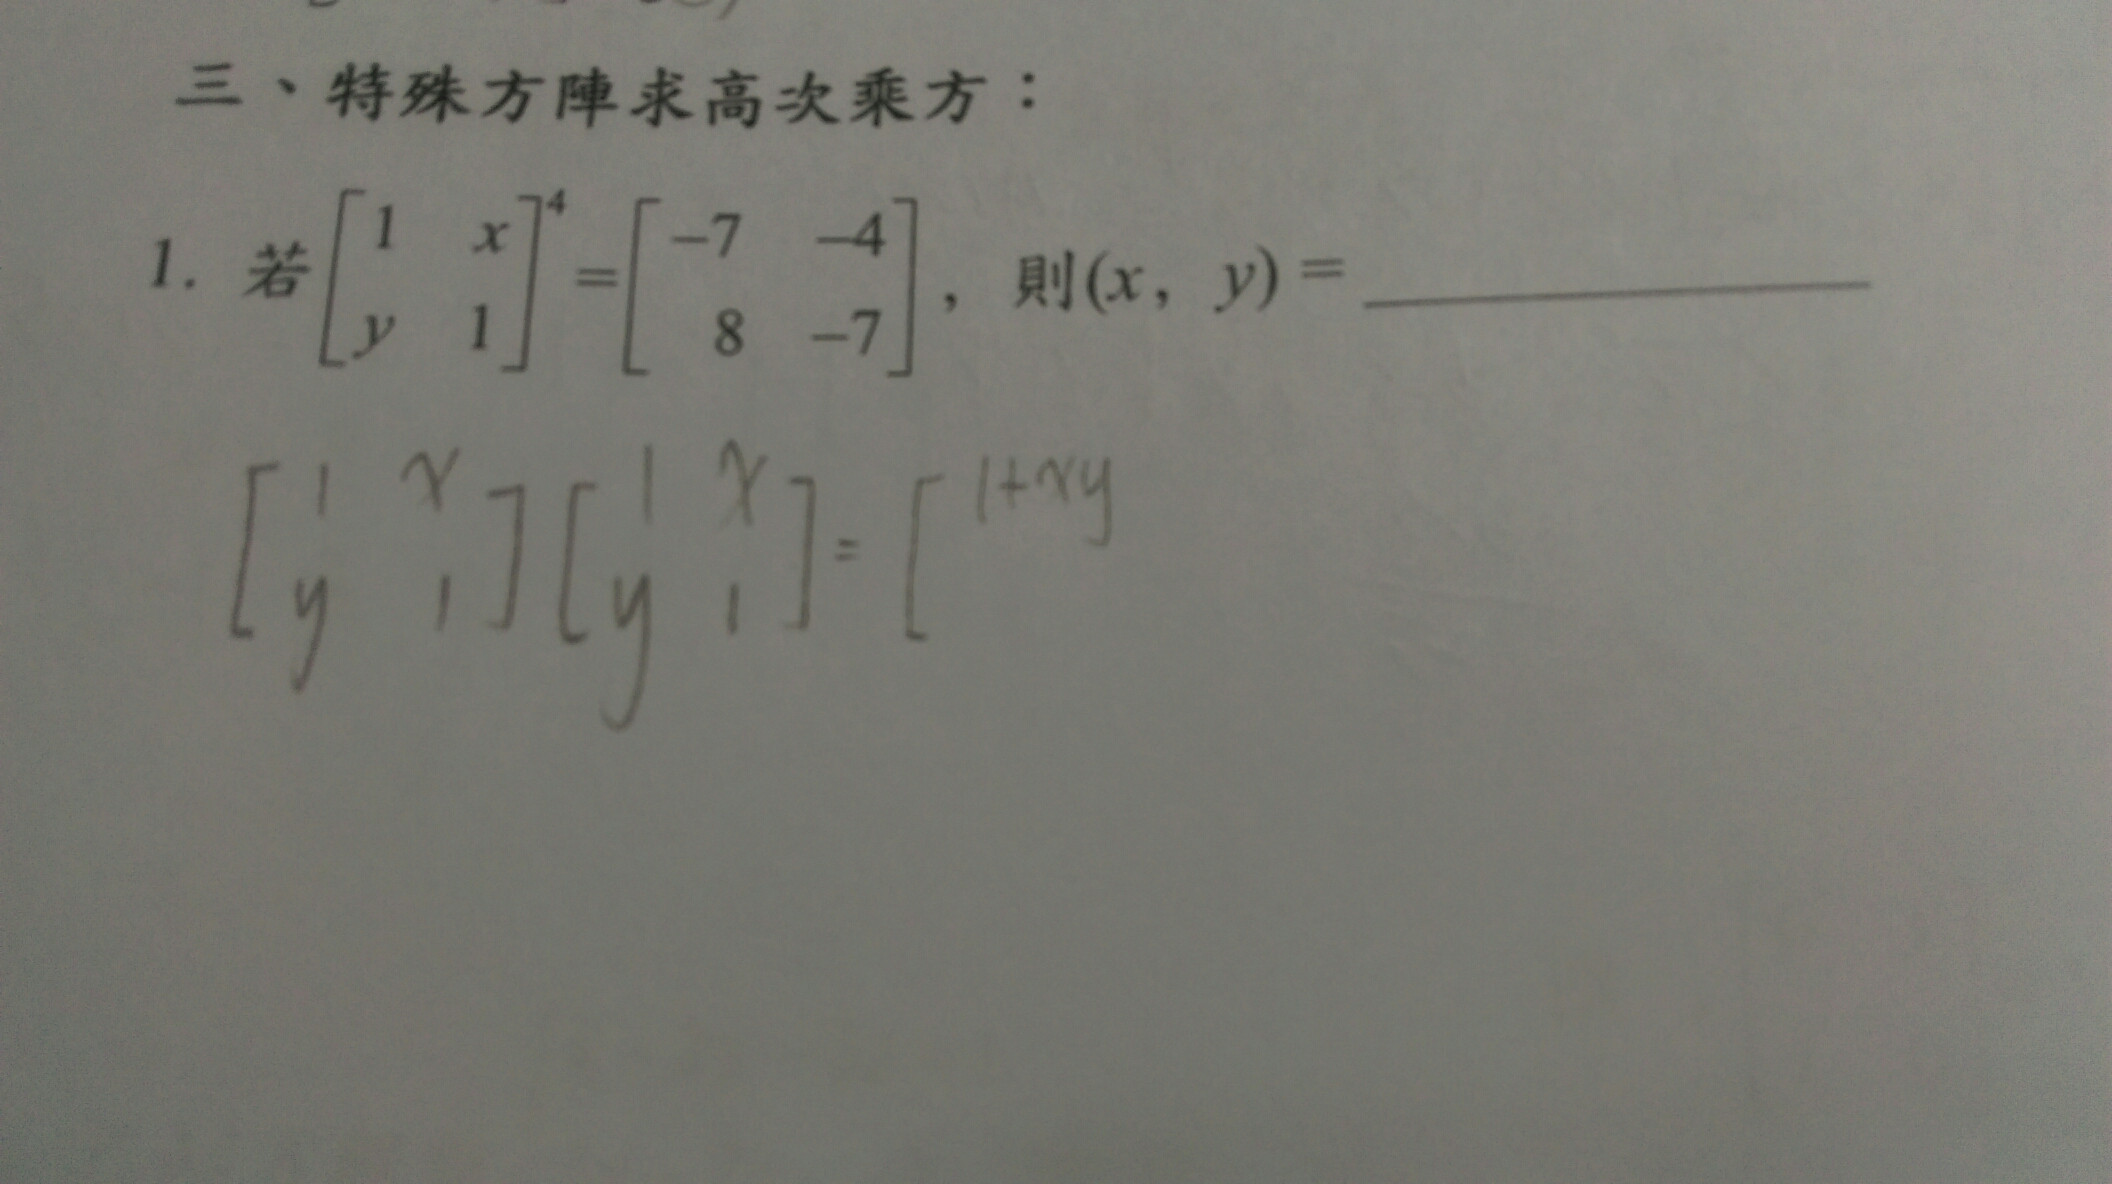 三、特殊方陣求高次乘方：
1. 若[1 x y 1]⁴=[-7 -4 8 -7]，則(x，y)=
[1 x y 1][1 x y 1]=[1+xy